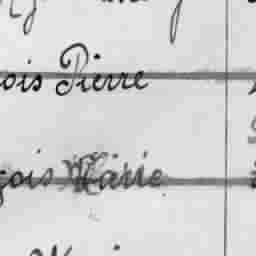 ois Pierre
çois Marie